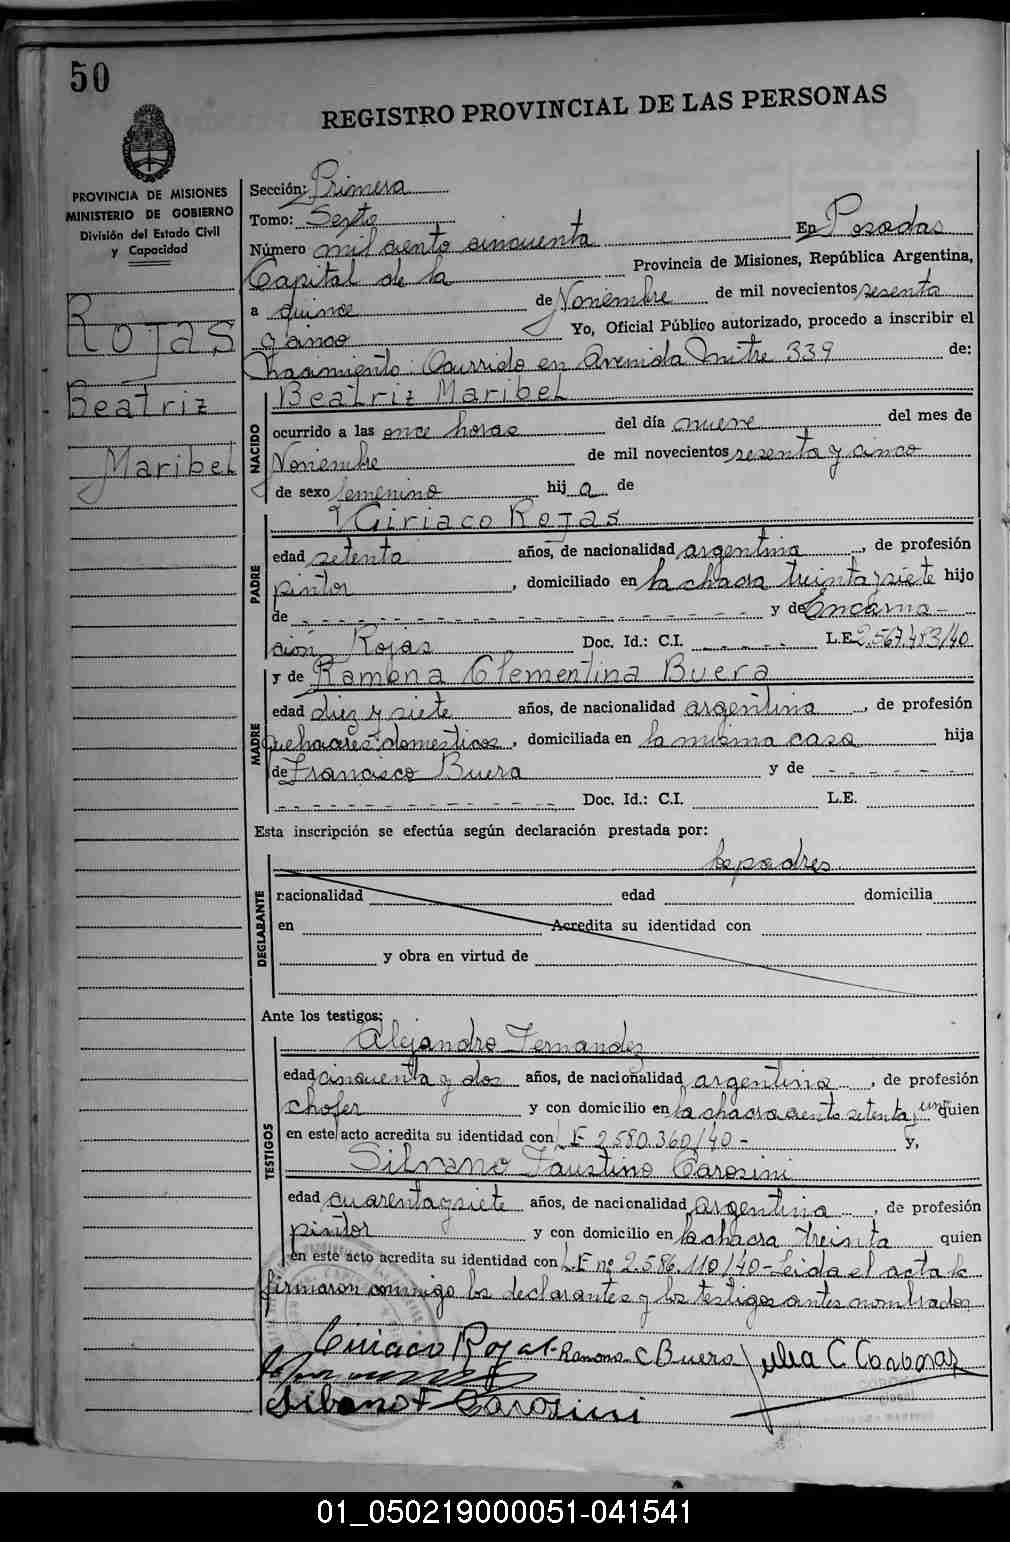 50
REGISTRO PROVINCIAL DE LAS PERSONAS
PROVINCIA DE MISIONES
MINISTERIO DE GOBIERNO
División del Estado Civil
y Capacidad
Rojas
Beatriz
Maribel
Sección: Primera
Tomo: Sexto
Número mil ciento cincuenta En Posadas
Capital de la Provincia de Misiones, República Argentina,
a quince de Noviembre de mil novecientos sesenta
y cinco Yo, Oficial Público autorizado, procedo a inscribir el
Nacimiento: Ocurrido en Avenida Mitre 339 de:
NACIDO
Beatriz Maribel
ocurrido a las once horas del día nueve del mes de
Noviembre de mil novecientos sesenta y cinco
de sexo femenino hij a de
PADRE
Ciriaco Rojas
edad setenta años, de nacionalidad argentina, de profesión
pintor, domiciliado en la chacra treinta y siete hijo
de - - - - - - - - - - - - y de Encarna-
ción Rojas Doc. Id.: C.I. - - - - - L.E. 2.567.483/40
MADRE
y de Ramona Clementina Buera
edad diez y siete años, de nacionalidad argentina, de profesión
quehaceres domesticos, domiciliada en la misma casa hija
de Francisco Buera y de - - - - - -
- - - - - - - - - - - - Doc. Id.: C.I. L.E.
Esta inscripción se efectúa según declaración prestada por:
DECLARANTE
los padres
nacionalidad edad domicilia
en Acredita su identidad con
y obra en virtud de
Ante los testigos:
TESTIGOS
Alejandro Fernandez
edad cincuenta y dos años, de nacionalidad argentina, de profesión
chofer y con domicilio en la chacra ciento setenta y un quien
en este acto acredita su identidad con L E 2.580.360/40 - y,
Silvano Faustino Carosini
edad cuarenta y siete años, de nacionalidad argentina, de profesión
pintor y con domicilio en la chacra treinta quien
en este acto acredita su identidad con L.E nº 2.586.110/40 - Leida el acta la
firmaron conmigo los declarantes y los testigos antes nombrados
Ciriaco Rojas Ramona C Buera Julia C
Silvano F Carosini
01_050219000051-041541